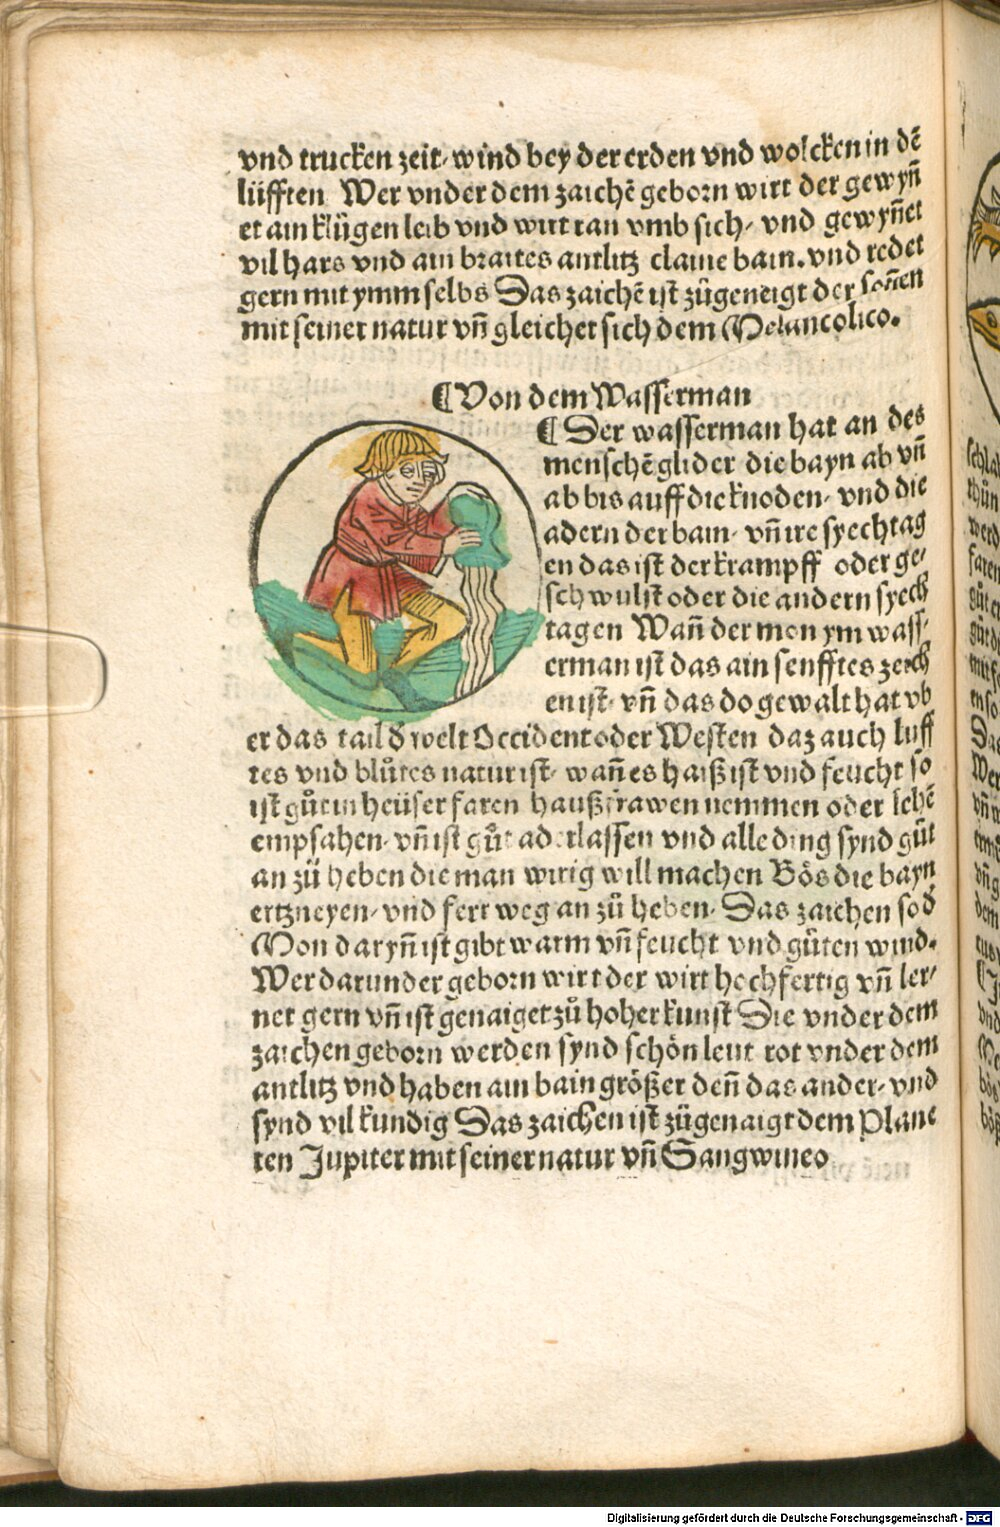 vnd trucken zeit· wind bey der erden vnd wolcken in dē
lüfften Wer vnder dem zaichē geborn wirt der gewyn̄
et ain klůgen leib vnd wirt ran vmb sich· vnd gewyn̄et
vil hars vnd ain braites antlitz claine bain. vnd redet
gern mit ymm selbs Das zaichē ist zůgeneigt der son̄en
mit seiner natur vn̄ gleichet sich dem Melancolico.
¶ Von dem Wasserman
¶ Der wasserman hat an des
menschē glider die bayn ab vn̄
ab bis auff die knoden· vnd die
adern der bain· vn̄ ire syechtag
en das ist der krampff oder ge⸗
schwulst oder die andern syech
tagen Wan̄ der mon ym wass⸗
erman ist das ain senfftes zeich
en ist· vn̄ das do gewalt hat vb
er das tail d̕ welt Occident oder Westen daz auch luff
tes vnd blůtes natur ist· wan̄ es haiß ist vnd feucht so
ist gůt in heüser faren haußfrawen nemmen oder lehē
empfahen· vn̄ ist gůt aderlassen vnd alle ding synd gůt
an zů heben die man wirig will machen Bös die bayn
ertzneyen· vnd ferr weg an zů heben· Das zaichen so d̕
Mon daryn̄ ist gibt warm vn̄ feucht vnd gůten wind.
Wer darunder geborn wirt der wirt hochfertig vn̄ ler⸗
net gern vn̄ ist genaiget zů hoher kunst Die vnder dem
zaichen geborn werden synd schön leut rot vnder dem
antlitz vnd haben ain bain größer den̄ das ander· vnd
synd vil kundig Das zaichen ist zůgenaigt dem Plane
ten Jupiter mit seiner natur vn̄ Sangwineo
Digitalisierung gefördert durch die Deutsche Forschungsgemeinschaft - DFG